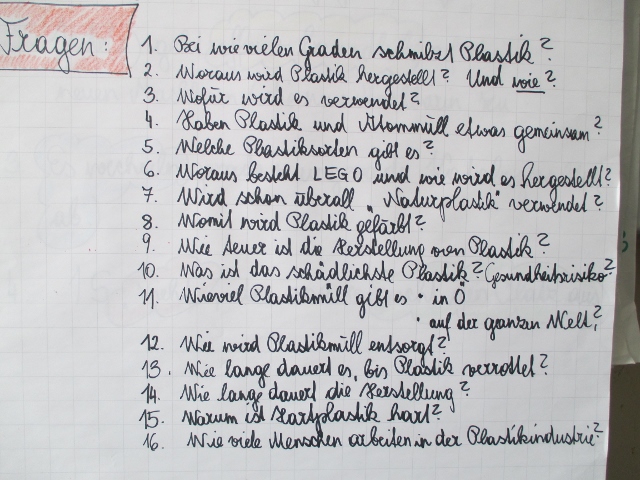 Fragen:
1. Bei wie vielen Graden schmilzt Plastik?
2. Woraus wird Plastik hergestellt? Und wie?
3. Wofür wird es verwendet?
4. Haben Plastik und Atommüll etwas gemeinsam?
5. Welche Plastiksorten gibt es?
6. Woraus besteht LEGO und wie wird es hergestellt?
7. Wird schon überall „Naturplastik" verwendet?
8. Womit wird Plastik gefärbt?
9. Wie teuer ist die Herstellung von Plastik?
10. Was ist das schädlichste Plastik? Gesundheitsrisiko?
11. Wieviel Plastikmüll gibt es · in Ö
· auf der ganzen Welt?
12. Wie wird Plastikmüll entsorgt?
13. Wie lange dauert es, bis Plastik verrottet?
14. Wie lange dauert die Herstellung?
15. Warum ist Hartplastik hart?
16. Wie viele Menschen arbeiten in der Plastikindustrie?